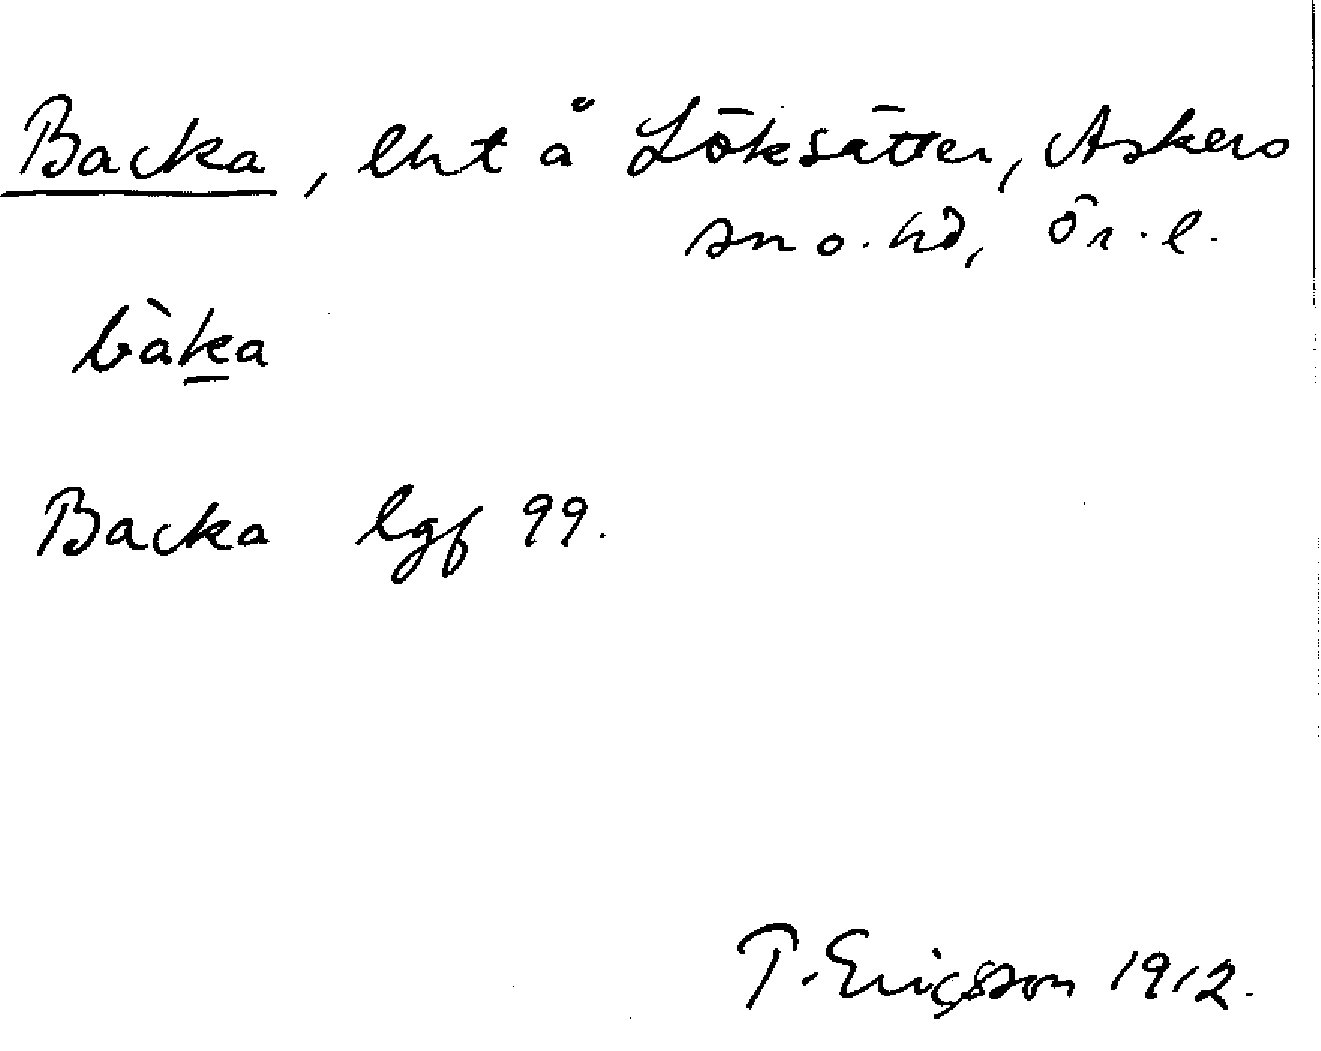 Backa, lht å Löksätter, Askers
sn o. hd, Ör. l.
bàka
Backa lgf 99.
T. Ericsson 1912.